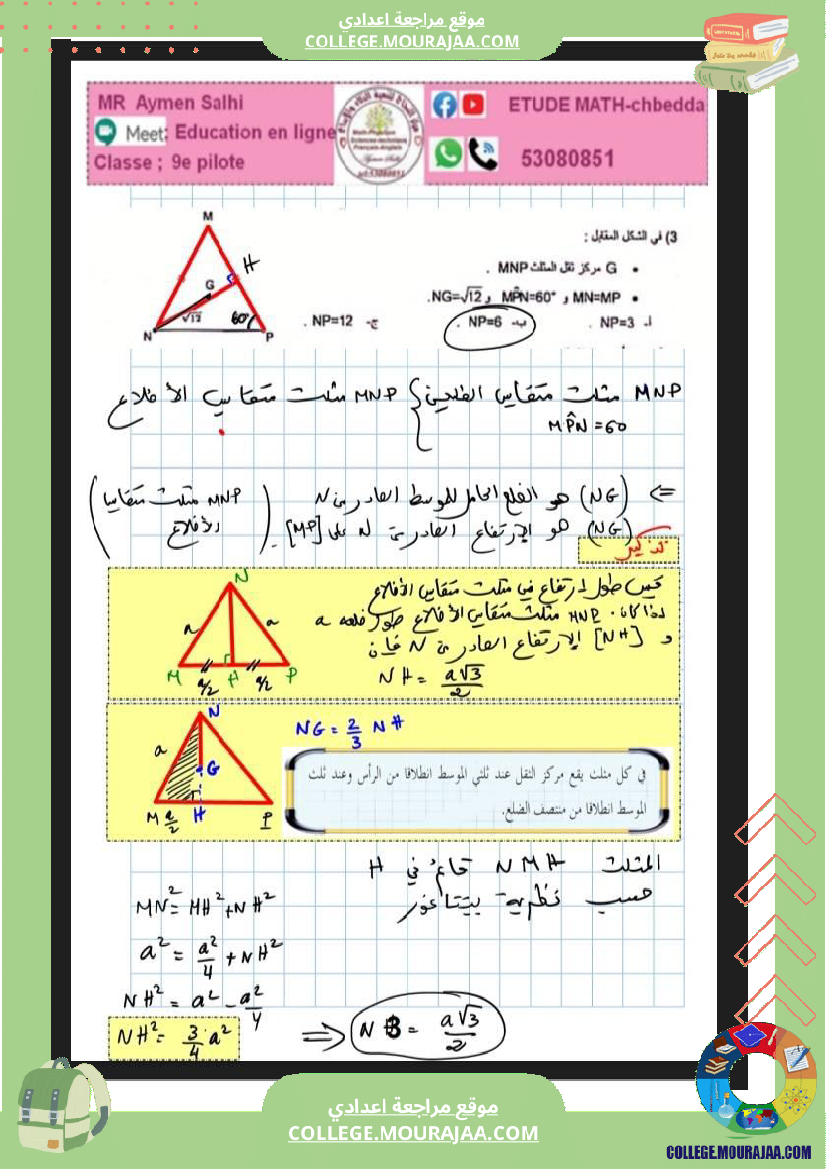 موقع مراجعة اعدادي
COLLEGE.MOURAJAA.COM
MR Aymen Salhi
Meet: Education en ligne
Classe ; 9e pilote
ETUDE MATH-chbedda
53080851
3) في الشكل المقابل :
• G مركز ثقل المثلث MNP .
• MN=MP و MP̂N=60° و NG=√12.
أ- NP=3 .
ب- NP=6 .
ج- NP=12 .
M
H
G
√12
60°
N
P
MNP مثلث متقايس الضلعين
MP̂N = 60
MNP مثلث متقايس الأضلاع
⇐ (NG) هو الضلع الحامل للموسط الصادر من N
(NG) هو الإرتفاع الصادر من N على [MP]
(MNP مثلث متقايس الأضلاع)
تذكير
طول ارتفاع في مثلث متقايس الأضلاع
إذا كان MNP مثلث متقايس الأضلاع طول ضلعه a
و [NH] الإرتفاع الصادر من N فإن
NH = a√3/2
N
a
a
M
a/2
H
a/2
P
NG = 2/3 NH
N
a
G
M
a/2
H
P
في كل مثلث يقع مركز الثقل عند ثلثي الموسط انطلاقا من الرأس وعند ثلث
الموسط انطلاقا من منتصف الضلع.
المثلث NMH قائم في H
حسب نظرية بيتاغور
MN² = MH² + NH²
a² = a²/4 + NH²
NH² = a² - a²/4
NH² = 3/4 a²
⇒ NH = a√3/2
موقع مراجعة اعدادي
COLLEGE.MOURAJAA.COM
COLLEGE.MOURAJAA.COM